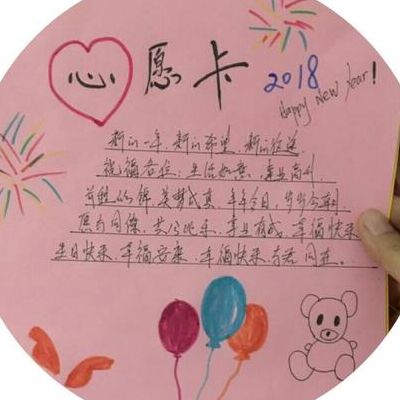 心愿卡
2018
Happy New Year!
新的一年,新的希望,新的征途
祝福各位:生活如意,事业高升
前程似锦,美梦成真,年年今日,岁岁今朝
愿与同僚,共分此乐,事业有成,幸福快乐
生日快乐,幸福安康,幸福快乐,与君同在。